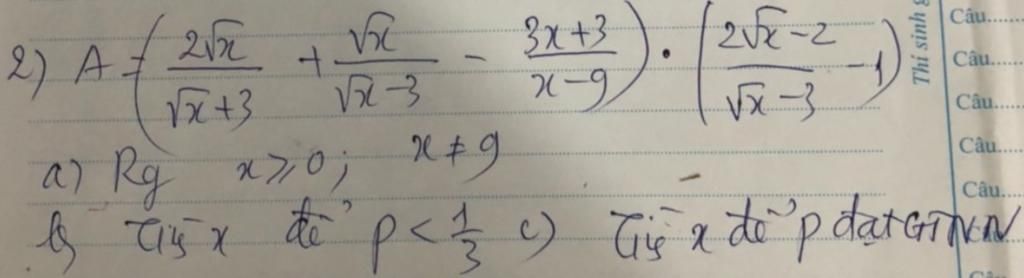 2) A = ( 2√x / (√x+3) + √x / (√x-3) - (3x+3) / (x-9) ) · ( (2√x-2) / (√x-3) - 1 )
a) Rg x ≥ 0; x ≠ 9
b) Tìm x để P < 1/3 c) Tìm x để P đạt GTNN
Thí sinh
Câu.....
Câu.....
Câu.....
Câu.....
Câu.....